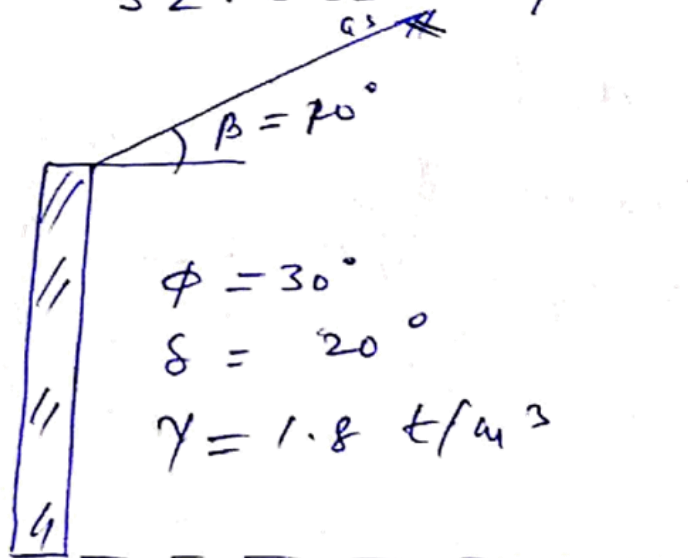 GS
β =
φ = 30°
δ = 20°
γ = 1.8 t/m³